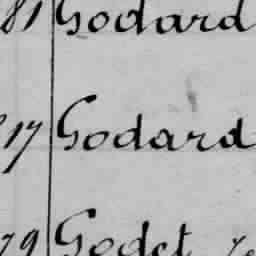 81 Godard
17 Godard
79 Godet